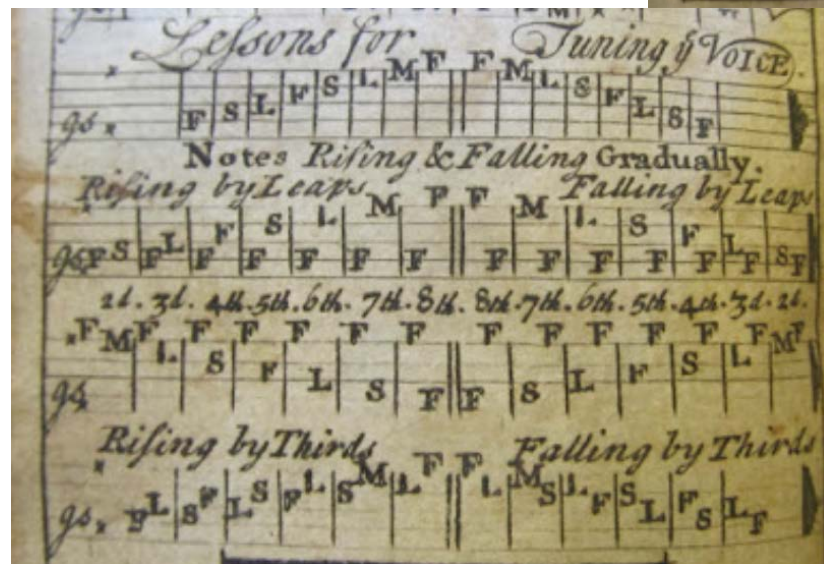 Leſsons for Tuning yͤ VOICE.
gs F S L F S L M F F M L S F L S F
Notes Riſing & Falling Gradually.
Riſing by Leaps Falling by Leaps
gs F S F L F F F S F L F M F F F F M F L F S F F F L F S F
2d. 3d. 4th. 5th. 6th. 7th. 8th. 8th. 7th. 6th. 5th. 4th. 3d. 2d.
gs F M F L F S F F F L F S F F F F F S F L F F F S F L M F
Riſing by Thirds Falling by Thirds
gs F L S F L S F L S M L F F L M S L F S L F S L F